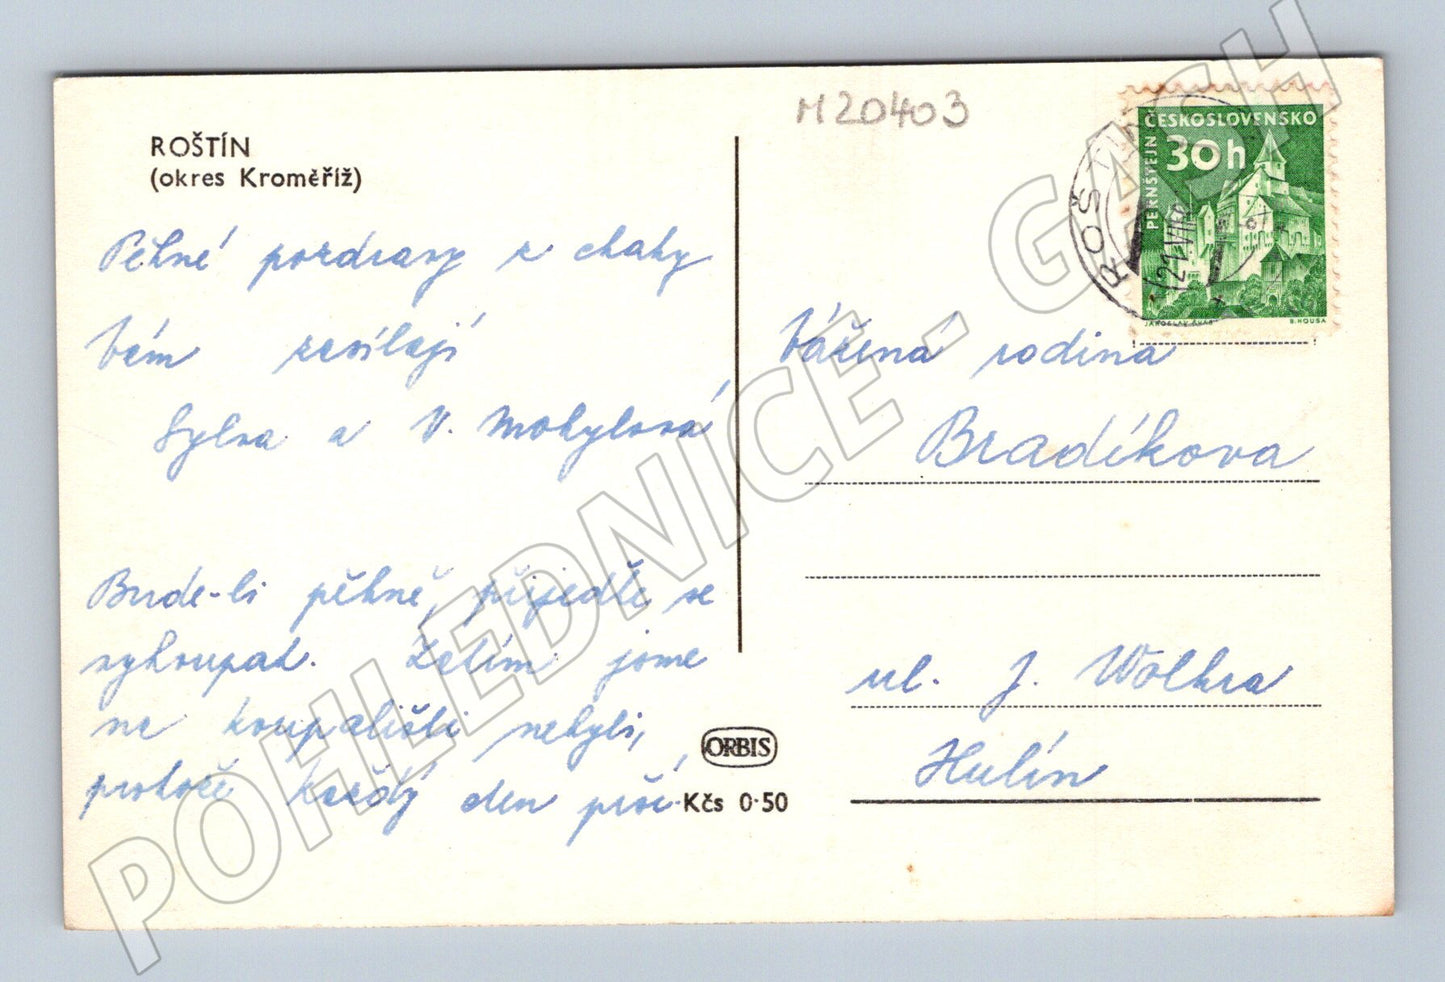 M 20403
ROŠTÍN
(okres Kroměříž)
Pěkné pozdravy z chaty
Vám zasílají
Sylva a V. Mohylová
Bude-li pěkně, přijeďte se
vykoupat. Zatím jsme
na koupališti nebyli,
protože každý den prší.
ORBIS
Kčs 0·50
ČESKOSLOVENSKO
30h
PERNŠTEJN
B. HOUSA
ROŠTÍN
21.VII
Vážená rodina
Bradíkova
ul. J. Wolkra
Hulín
POHLEDNICE - GASH